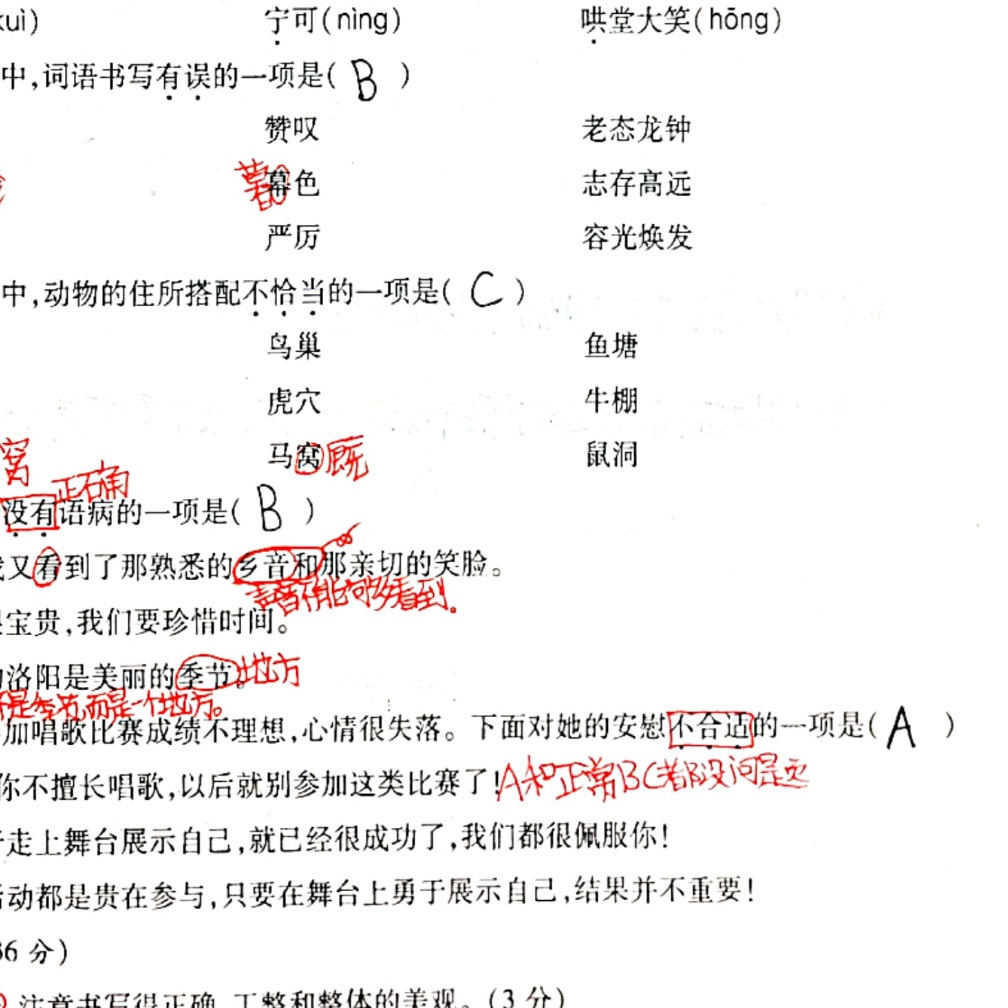 kuì) 宁可(nìng) 哄堂大笑(hōng)
中,词语书写有误的一项是( B )
赞叹 老态龙钟
暮 幕色 志存高远
严厉 容光焕发
中,动物的住所搭配不恰当的一项是( C )
鸟巢 鱼塘
虎穴 牛棚
窝 马窝 厩 鼠洞
正确
没有语病的一项是( B )
又看到了那熟悉的乡音和那亲切的笑脸。
声音不能够看到。
宝贵,我们要珍惜时间。
洛阳是美丽的季节。地方
不是季节,而是一个地方。
加唱歌比赛成绩不理想,心情很失落。下面对她的安慰不合适的一项是( A )
你不擅长唱歌,以后就别参加这类比赛了! A 正常BC都没问题
走上舞台展示自己,就已经很成功了,我们都很佩服你!
动都是贵在参与,只要在舞台上勇于展示自己,结果并不重要!
36 分)
注意书写得正确、工整和整体的美观。(3 分)